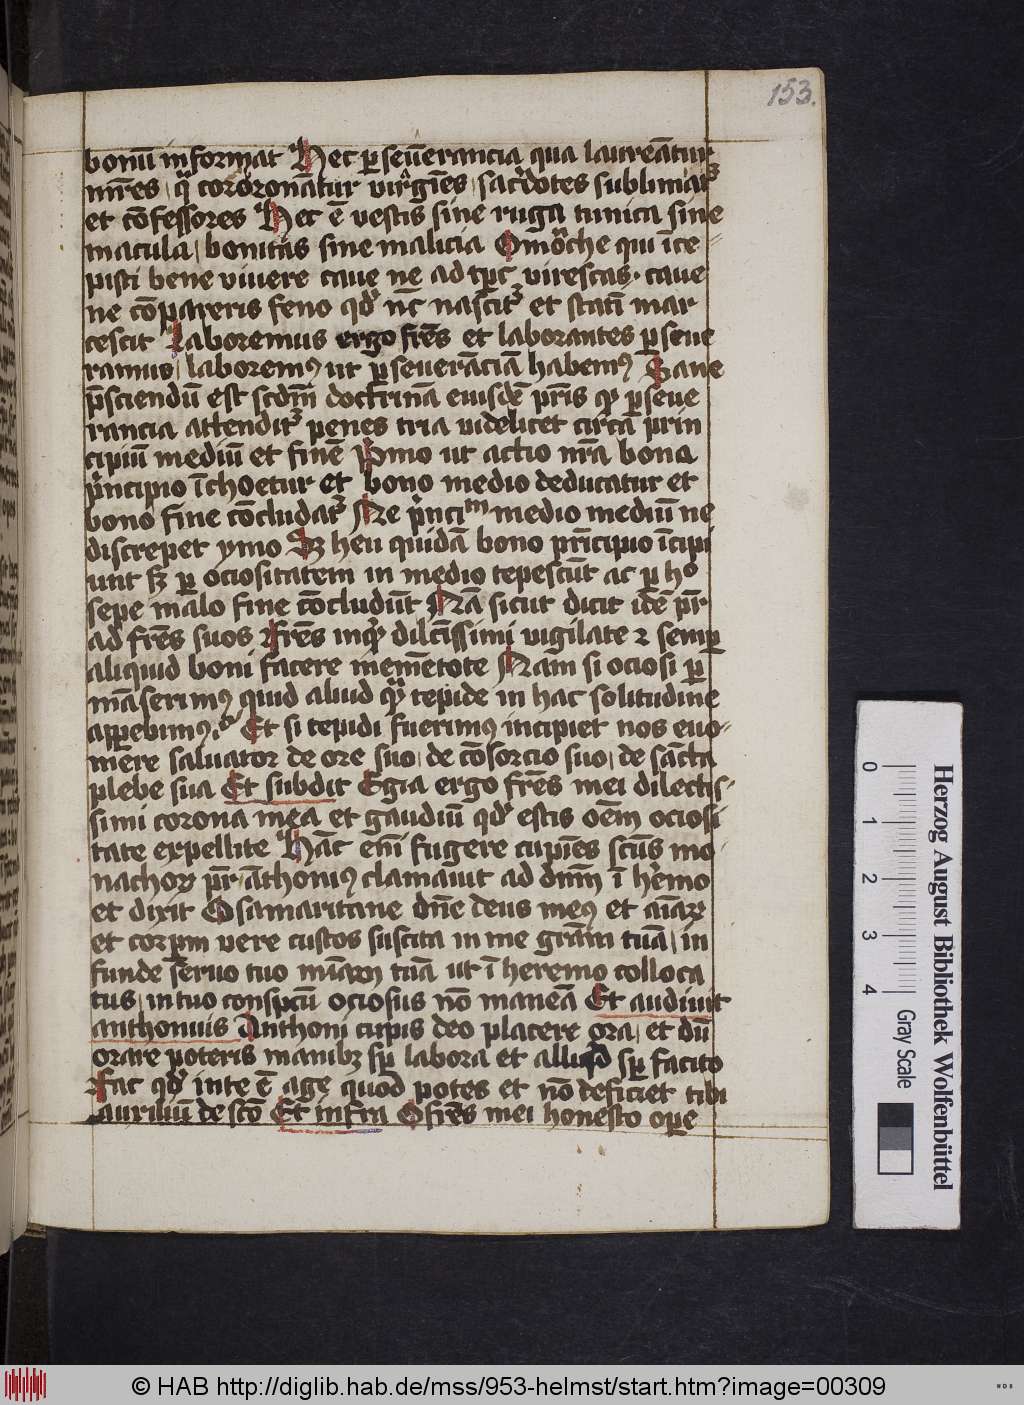 153.
bonū informat Hec ꝑseūerancia qua laureātur
mr̄es, q̄ cororonātur virgīes, sac̄dotes sublimāt᷑
et cōfessores Hec ē vestis sine ruga tunica sine
macula, bonitas sine malicia O mōche qui īce
pisti bene vivere cave ne ad tp̄c virescas. cave
ne cōpareris feno qd̄ nc̄ nascit᷑ et statī mar
cescit Laboremus ergo fr̄es et laborantes ꝑseue
ramus, laboremꝯ ut ꝑseuerāciā habemꝯ Sane
p̄sciendū est scdm̄ doctrinā eiusdē pr̄is qꝫ ꝑseue
rancia attendit᷑ penes tria videlicet circa prin
cipiū mediū et finē Pͥmo ut actio nr̄a bona
pͥncipio īchoetur et bono medio deducatur et
bono fine cōcludat᷑ Ne pͥnciᵐ medio mediū ne
discrepet ymo Sꝫ heu quidā bono prīcipio īcipi
unt sꝫ ꝑ ociositatem in medio tepescūt ac ꝑ hᵒ
sepe malo fine cōcludūt Nā sicut dicit idē pr̄
ad fr̄es suos Fr̄es inqͥ dilc̄issimi vigilate ⁊ semꝑ
aliquid boni facere memētote Nam si ociosi ꝑ
māserimꝯ quid aliud qͣꝫ tepide in hac solitudine
apꝑebimꝯ. Et si tepidi fuerimꝯ incipiet nos evo
mēre salvator de ore suo, de cōsorcio suo, de sācta
plebe sua Et subdit Egia ergo fr̄es mei dilectis
simi corona mea et gaudiū qd̄ estis oēm ociosi
tate expellite Hāc em̄ fugere cupiēs sctūs mo
nachoꝝ pr̄ āthoniꝯ clamavit ad dn̄m ī hͤmo
et dixit O samaritane dn̄e deus meꝯ et aīaꝝ
et corꝑm vere custos suscita in me grām tuā, in
funde servo tuo mīam tuā ut ī heremo colloca
tus, in tuo conspcū ociosus nō maneā Et audiuit
anthonius Anthoni cupis deo placere ora, et dū
orare poteris manibꝫ sp̄ labora et aliud sp̄ facito
Fac qd̄ inte ē age quod potes et nō deficiet tibi
auxiliū de scō Et infra O fr̄es mei honesto oꝑe
0
1
2
3
4
Herzog August Bibliothek Wolfenbüttel
Gray Scale
© HAB http://diglib.hab.de/mss/953-helmst/start.htm?image=00309